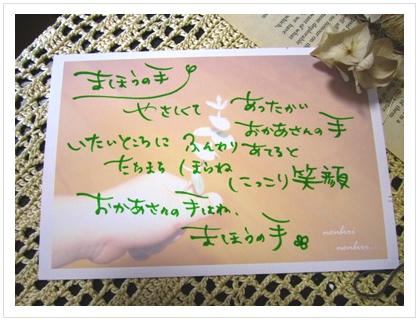 まほうの手
やさしくて あったかい
おかあさんの手
いたいところに ふんわりあてると
たちまち ほらね
にっこり笑顔
おかあさんの手はね、
まほうの手
nonbiri
nonbiri...